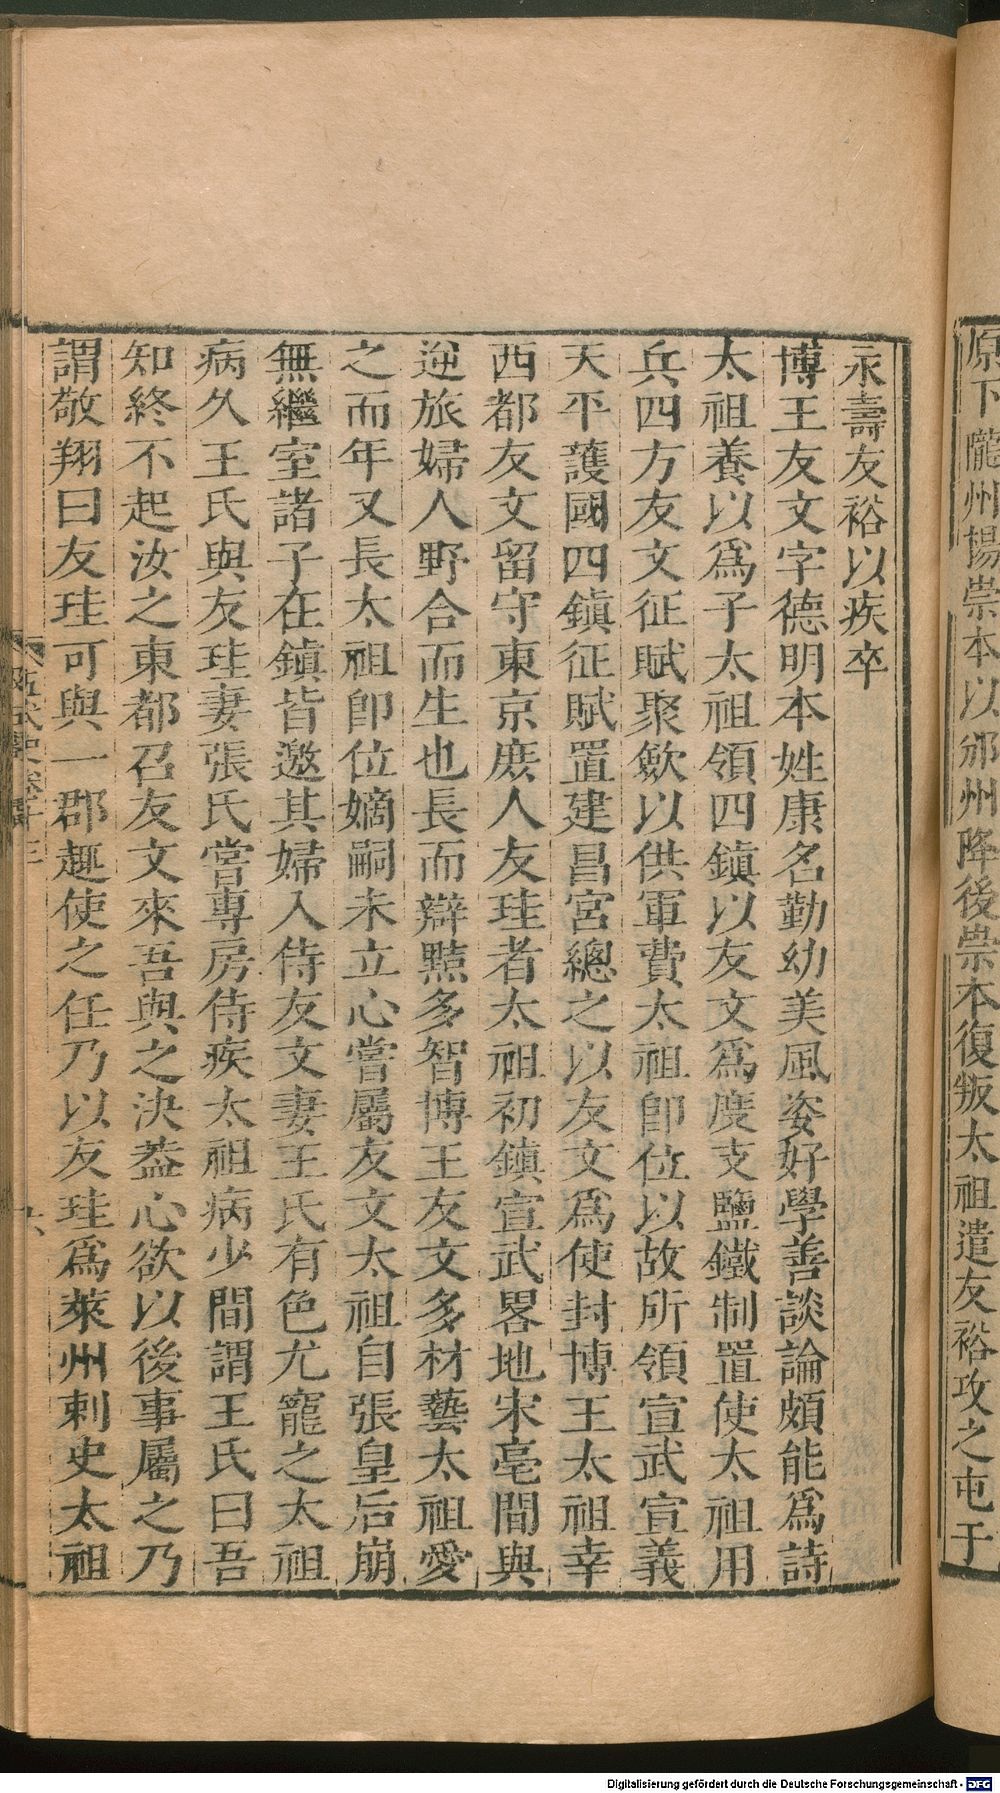 原下隴州楊崇本以邠州降後崇本復叛太祖遣友裕攻之屯于
永壽友裕以疾卒
博王友文字德明本姓康名勤幼美風姿好學善談論頗能爲詩
太祖養以爲子太祖領四鎮以友文爲度支鹽鐵制置使太祖用
兵四方友文征賦聚斂以供軍費太祖卽位以故所領宣武宣義
天平護國四鎮征賦置建昌宮總之以友文爲使封博王太祖幸
西都友文留守東京庶人友珪者太祖初鎮宣武畧地宋亳間與
逆旅婦人野合而生也長而辯黠多智博王友文多材藝太祖愛
之而年又長太祖卽位嫡嗣未立心嘗屬友文太祖自張皇后崩
無繼室諸子在鎮皆邀其婦入侍友文妻王氏有色尤寵之太祖
病久王氏與友珪妻張氏嘗專房侍疾太祖病少間謂王氏曰吾
知終不起汝之東都召友文來吾與之決葢心欲以後事屬之乃
謂敬翔曰友珪可與一郡趣使之任乃以友珪爲萊州刺史太祖
五代史卷十三
Digitalisierung gefördert durch die Deutsche Forschungsgemeinschaft - DFG